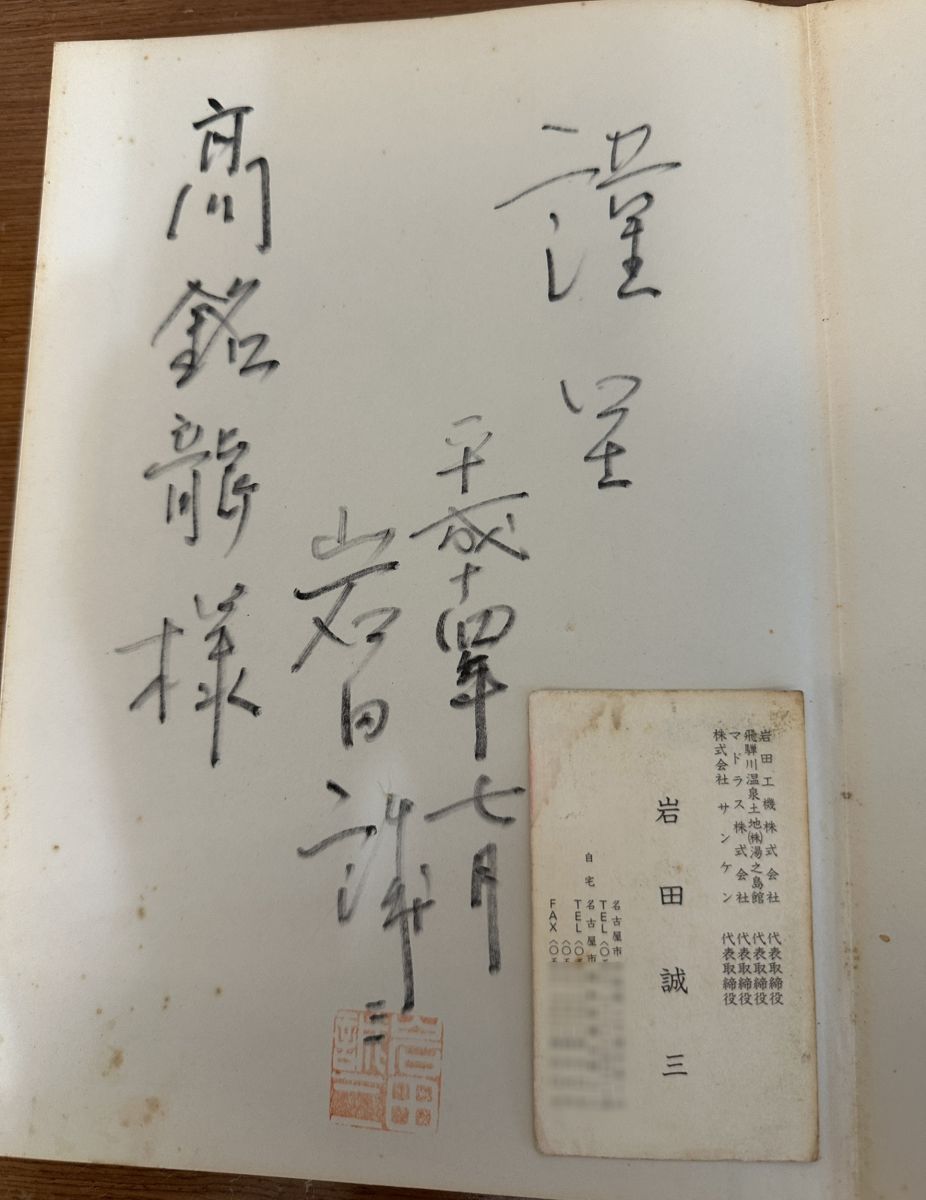 謹呈
平成十四年七月
岩田誠三
高銘龍様
岩田工機株式会社 代表取締役
飛騨川温泉土地㈱湯之島館 代表取締役
マドラス株式会社 代表取締役
株式会社サンケン 代表取締役
岩田誠三
名古屋市
TEL〈０５
自宅 名古屋市
TEL〈０５
〈０５
FAX〈０５
岩田誠三